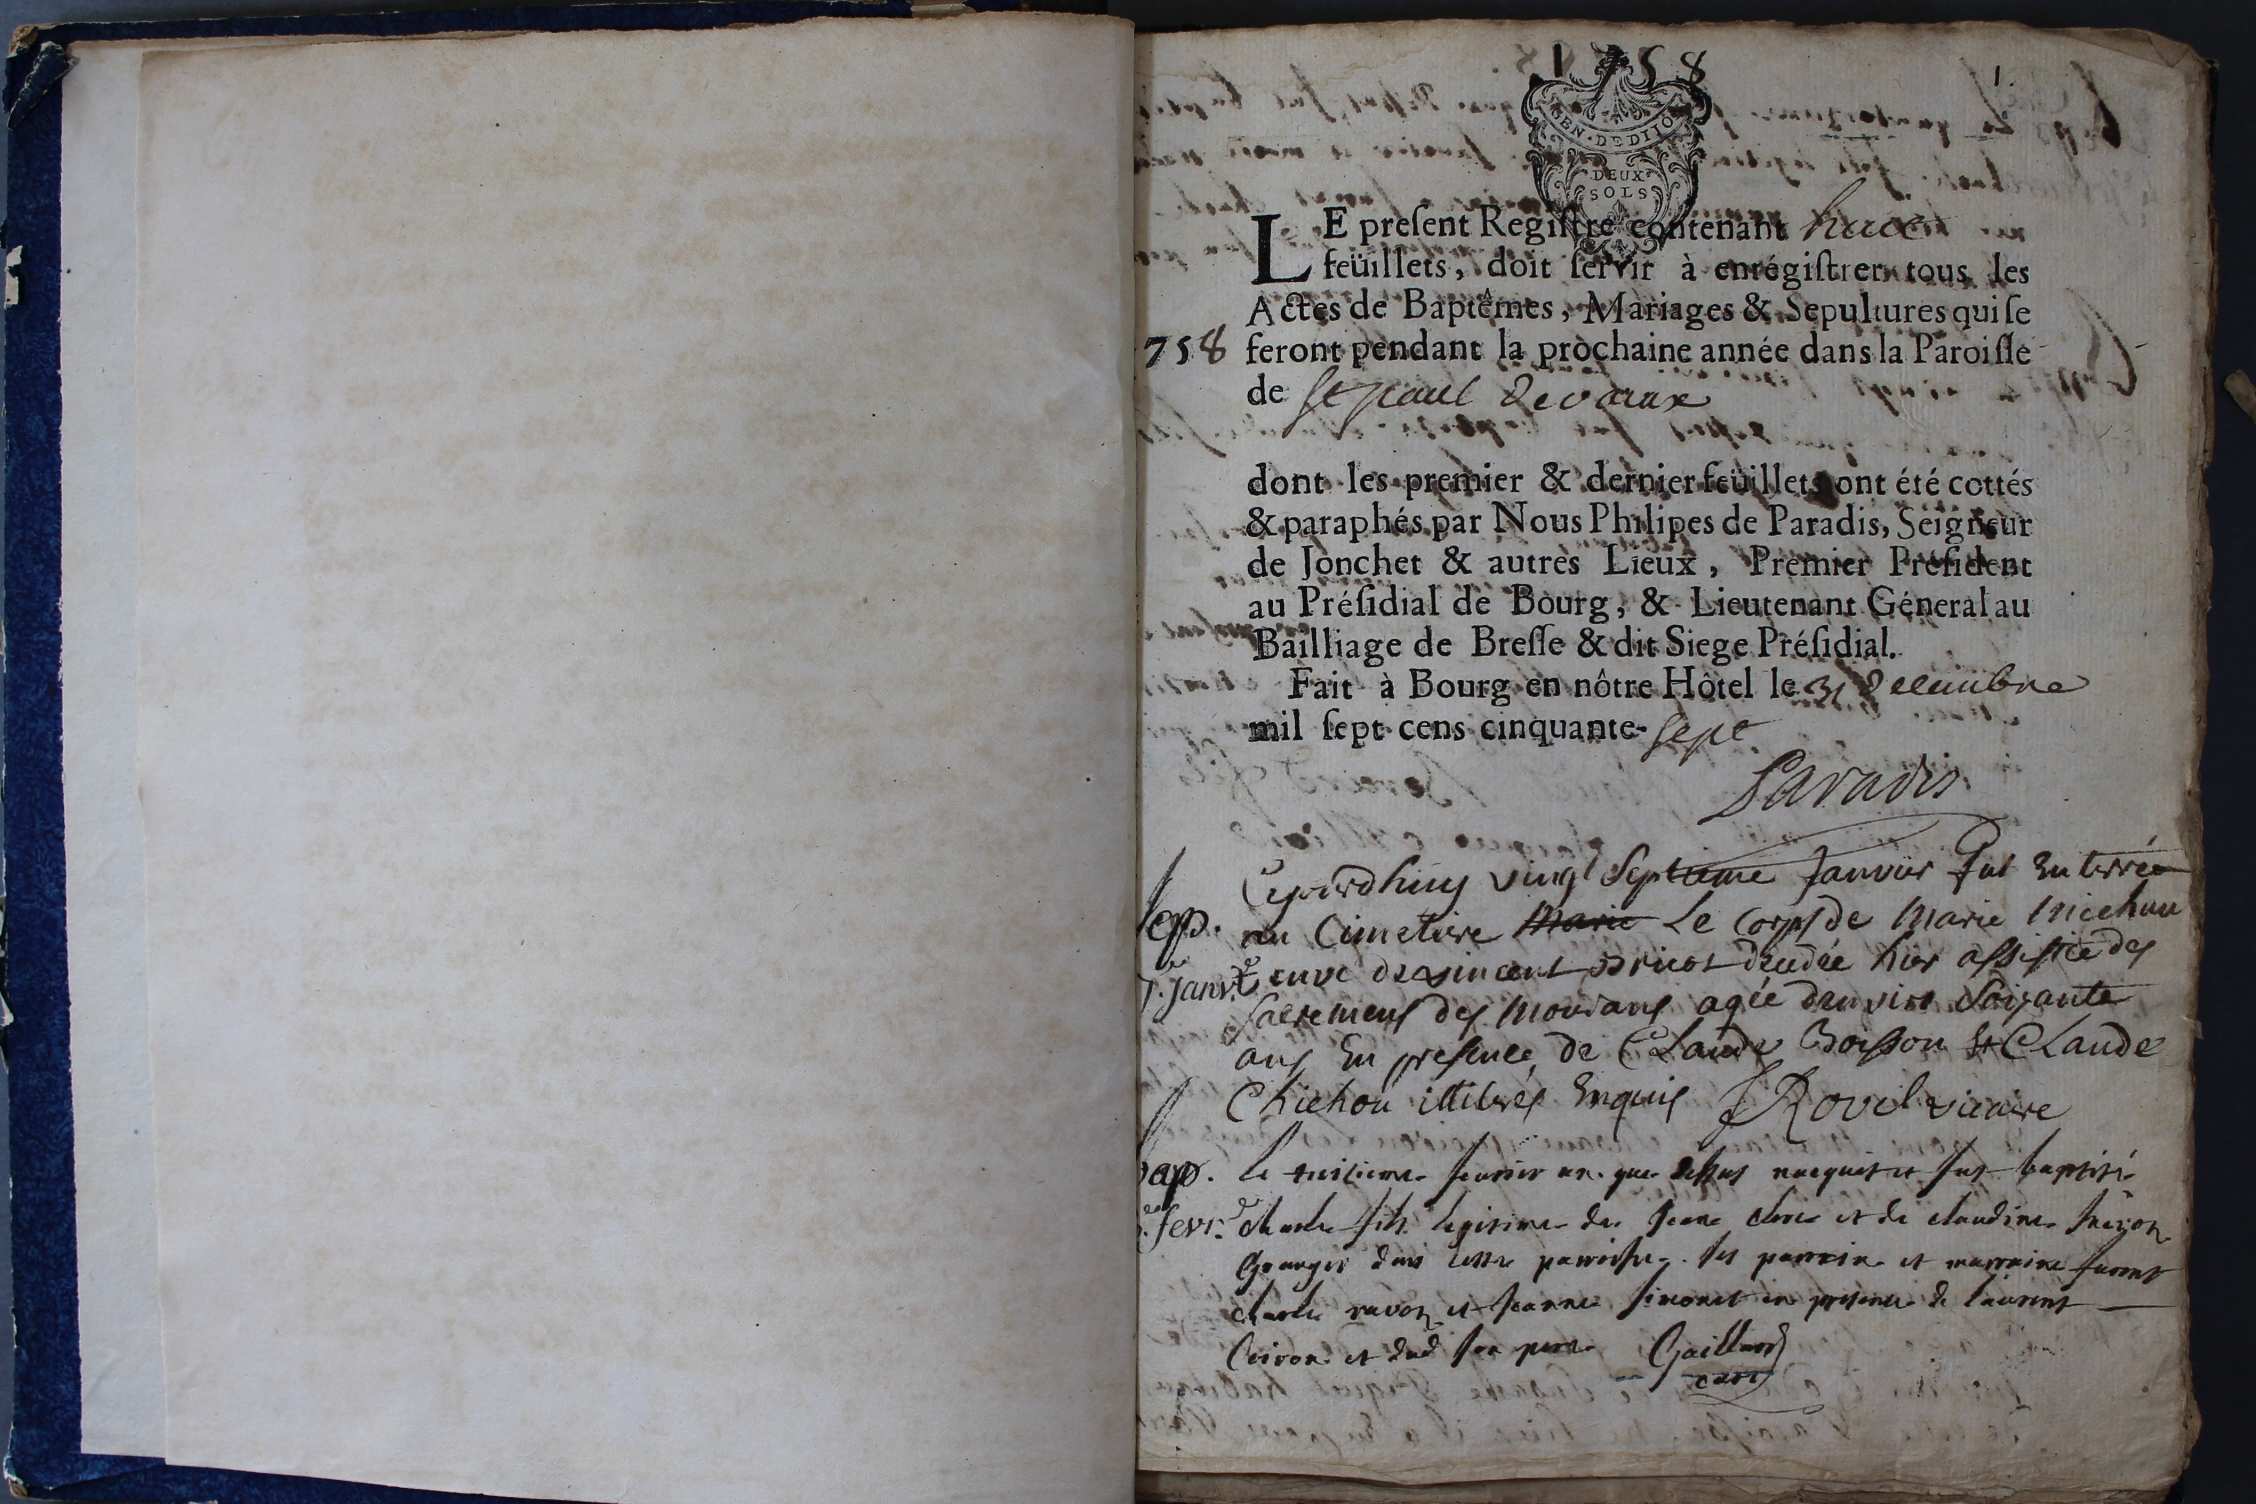 1758
1.
GEN · DE DIJON
DEUX
SOLS
LE preſent Regiſtre contenant huit
feüillets, doit ſervir à enrégiſtrer tous les
Actes de Baptêmes, Mariages & Sepultures qui ſe
758 feront pendant la prochaine année dans la Paroiſſe
de St paul devaux
dont les premier & dernier feüillets ont été cottés
& paraphés par Nous Philipes de Paradis, Seigneur
de Jonchet & autres Lieux, Premier Préſident
au Préſidial de Bourg, & Lieutenant Géneral au
Bailliage de Breſſe & dit Siege Préſidial.
Fait à Bourg en nôtre Hôtel le 31 decembre
mil ſept cens cinquante-sept
Paradis
Cejourdhuy vingt Septieme Janvier fut Enterrée
sep. au Cimetiere Marie Le Corps de Marie Michon
7.e Janv. veuve de vincent decedée hier assistée des
sacremens des mourans agée denviron Soixante
ans En presence de Claude Boisson et CLaude
Chichon illiterés Enquis Rovel vicaire
bap. le huitieme fevrier an que dessus nacquit et fut baptisé
fevr. charle fils legitime de Jean et de claudine
Granger dans cette parroisse. ses parrain et marraine furent
charle ravoz et Jeanne simonet en presence de laurent
et dud son pere Gaillard
curé